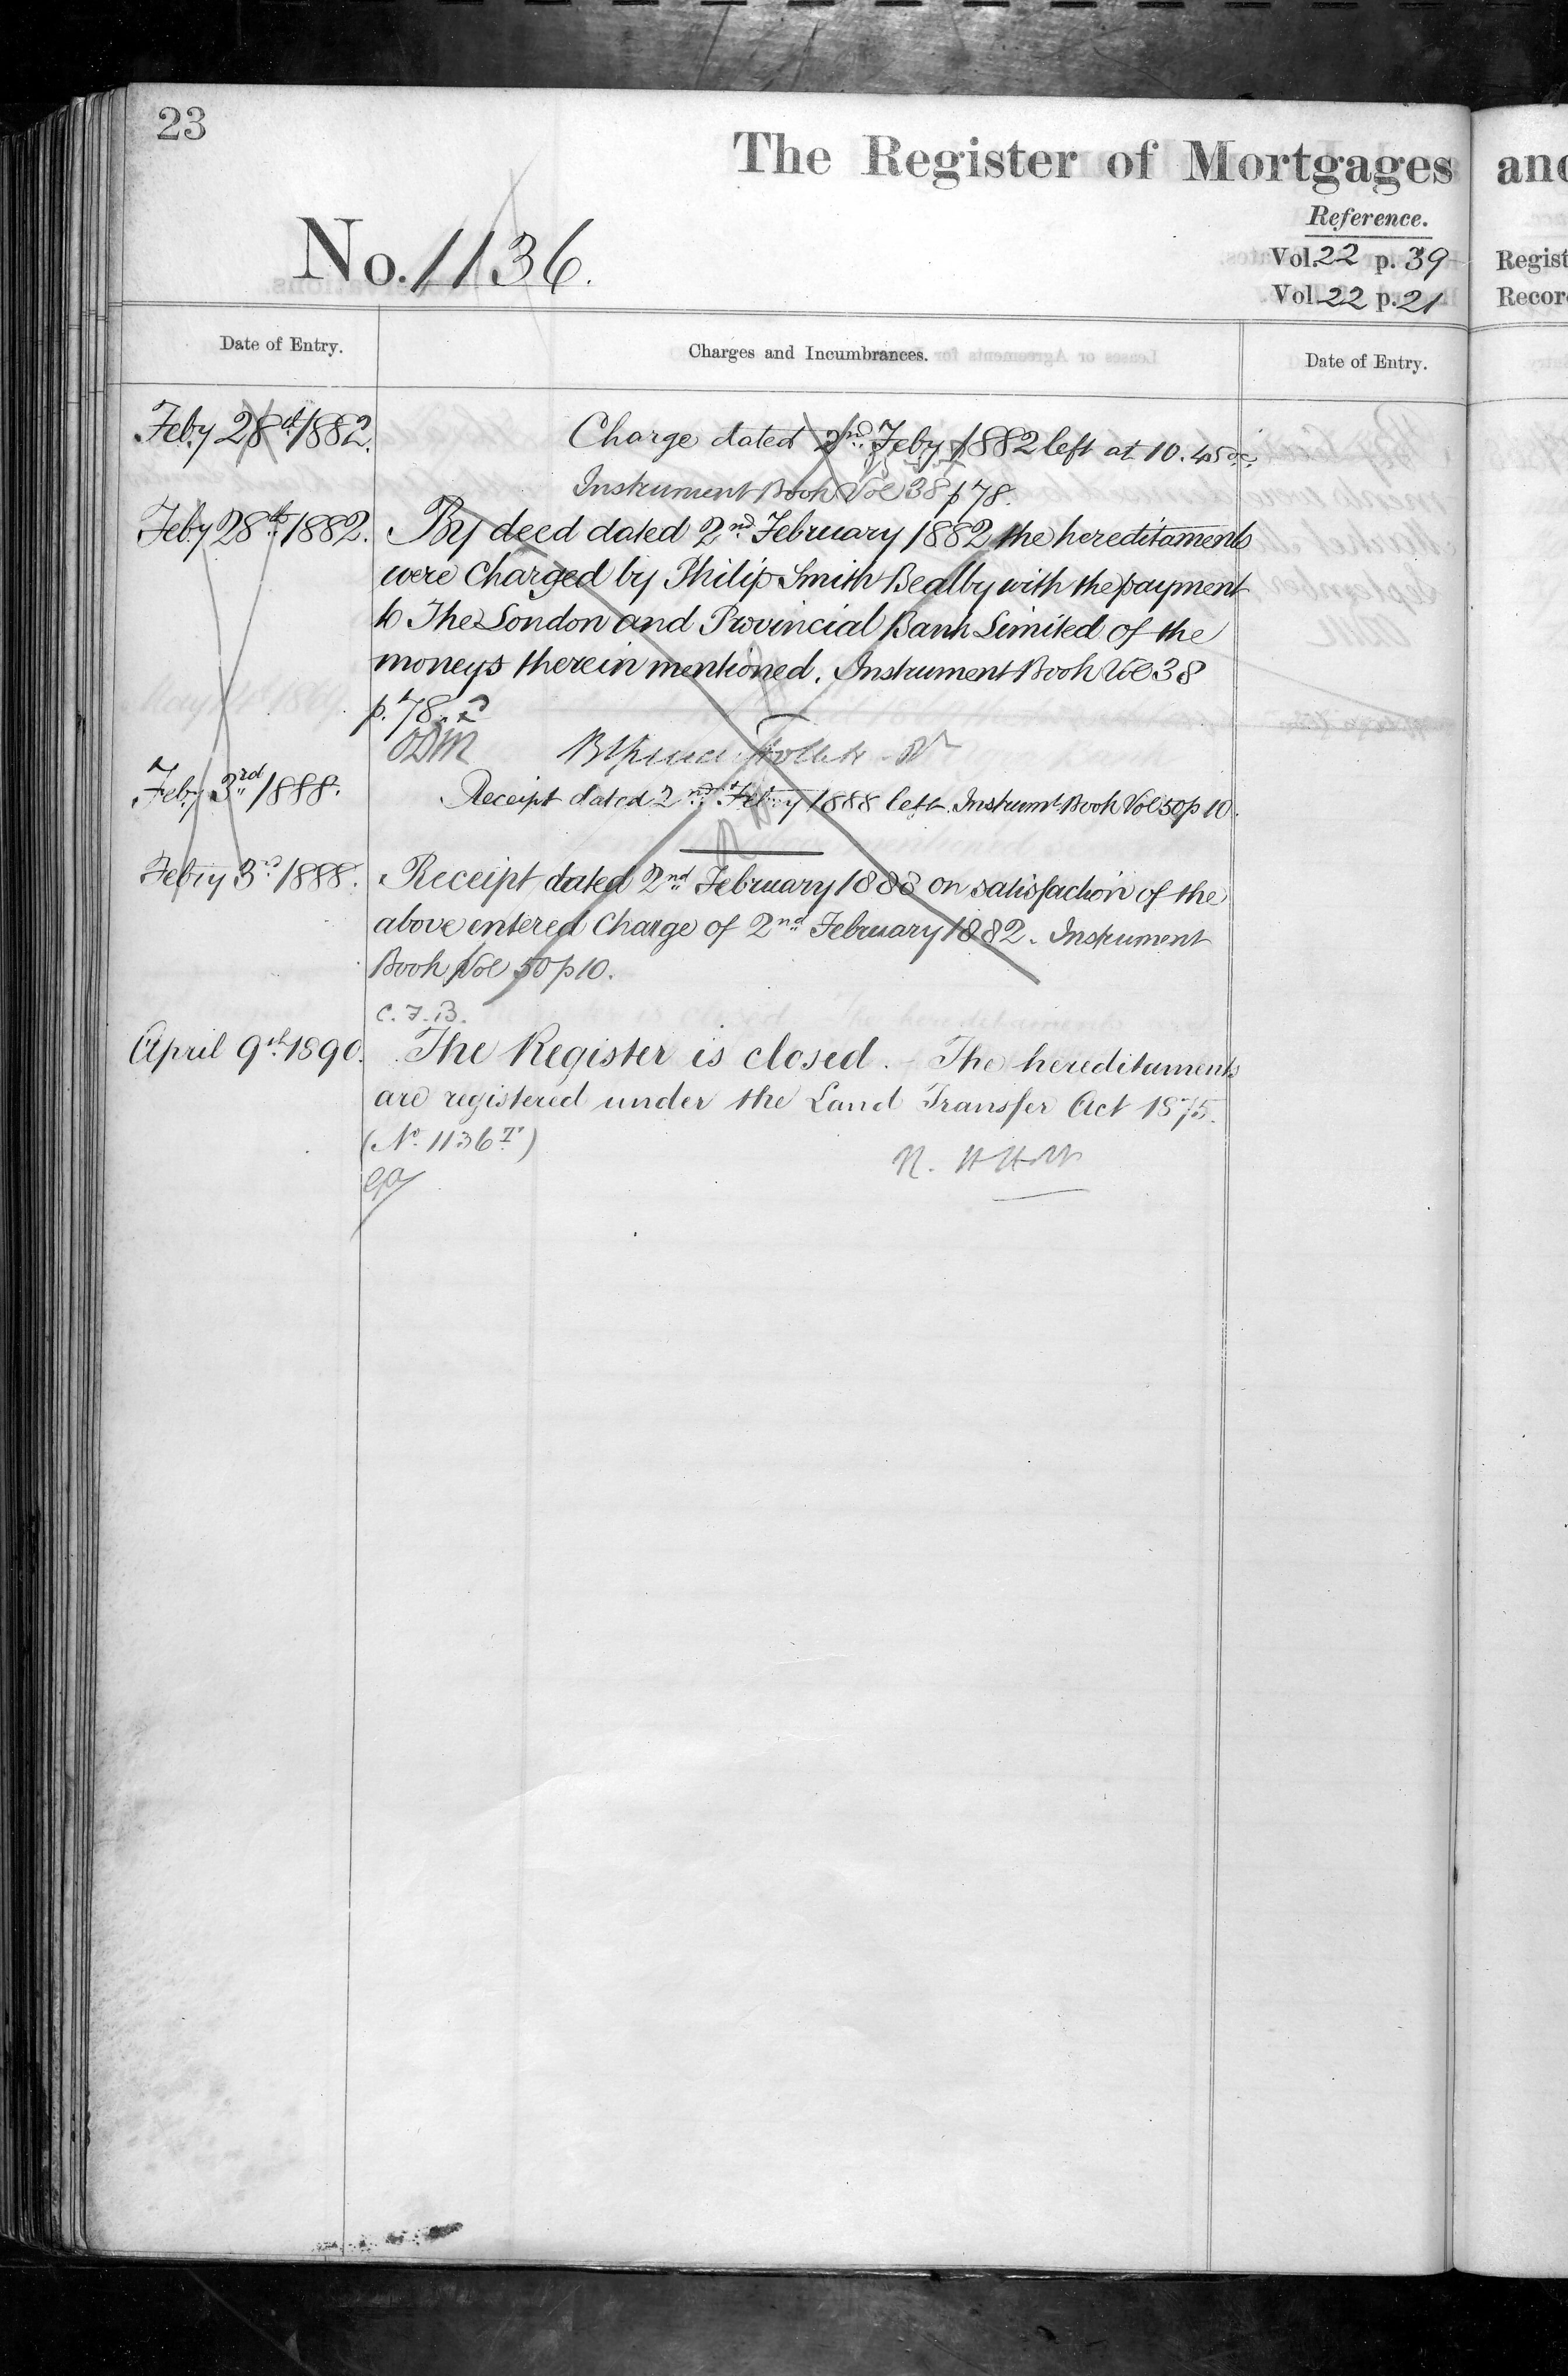 23
The Register of Mortgages and
Reference.
No. 1136.
Vol. 22 p. 39
Vol. 22 p. 21
Regist
Recor
Date of Entry.
Charges and Incumbrances.
Date of Entry.
Feby 28th 1882.
Charge dated 2nd Feby 1882 left at 10.45
Instrument Book Vol 38 p 78.
Feby 28th 1882.
By deed dated 2nd February 1882 the hereditaments
were Charged by Philip Smith Bealby with the payment
to The London and Provincial Bank Limited of the
moneys therein mentioned. Instrument Book Vol 38
p. 78.
ODM
Feby 3rd 1888.
Receipt dated 2nd Febry 1888 left. Instrumt Book Vol 50 p 10.
Febry 3rd 1888.
Receipt dated 2nd February 1888 on satisfaction of the
above entered Charge of 2nd February 1882. Instrument
Book Vol 50 p 10.
C. F. B.
April 9th 1890.
The Register is closed. The hereditaments
are registered under the Land Transfer Act 1875.
(No. 1136T)